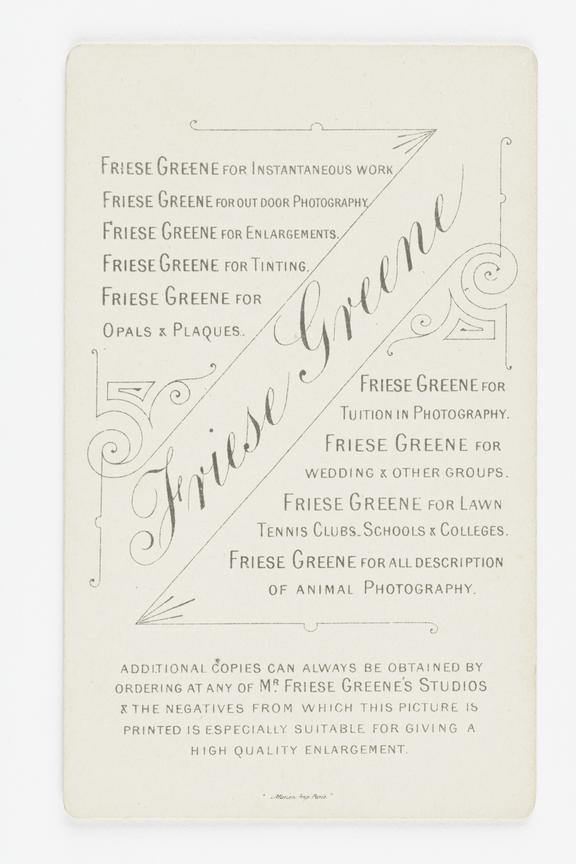 FRIESE GREENE FOR INSTANTANEOUS WORK
FRIESE GREENE FOR OUT DOOR PHOTOGRAPHY.
FRIESE GREENE FOR ENLARGEMENTS.
FRIESE GREENE FOR TINTING.
FRIESE GREENE FOR
OPALS & PLAQUES.
Friese Greene
FRIESE GREENE FOR
TUITION IN PHOTOGRAPHY.
FRIESE GREENE FOR
WEDDING & OTHER GROUPS.
FRIESE GREENE FOR LAWN
TENNIS CLUBS. SCHOOLS & COLLEGES.
FRIESE GREENE FOR ALL DESCRIPTION
OF ANIMAL PHOTOGRAPHY.
ADDITIONAL COPIES CAN ALWAYS BE OBTAINED BY
ORDERING AT ANY OF MR. FRIESE GREENE'S STUDIOS
& THE NEGATIVES FROM WHICH THIS PICTURE IS
PRINTED IS ESPECIALLY SUITABLE FOR GIVING A
HIGH QUALITY ENLARGEMENT.
Marion Imp. Paris